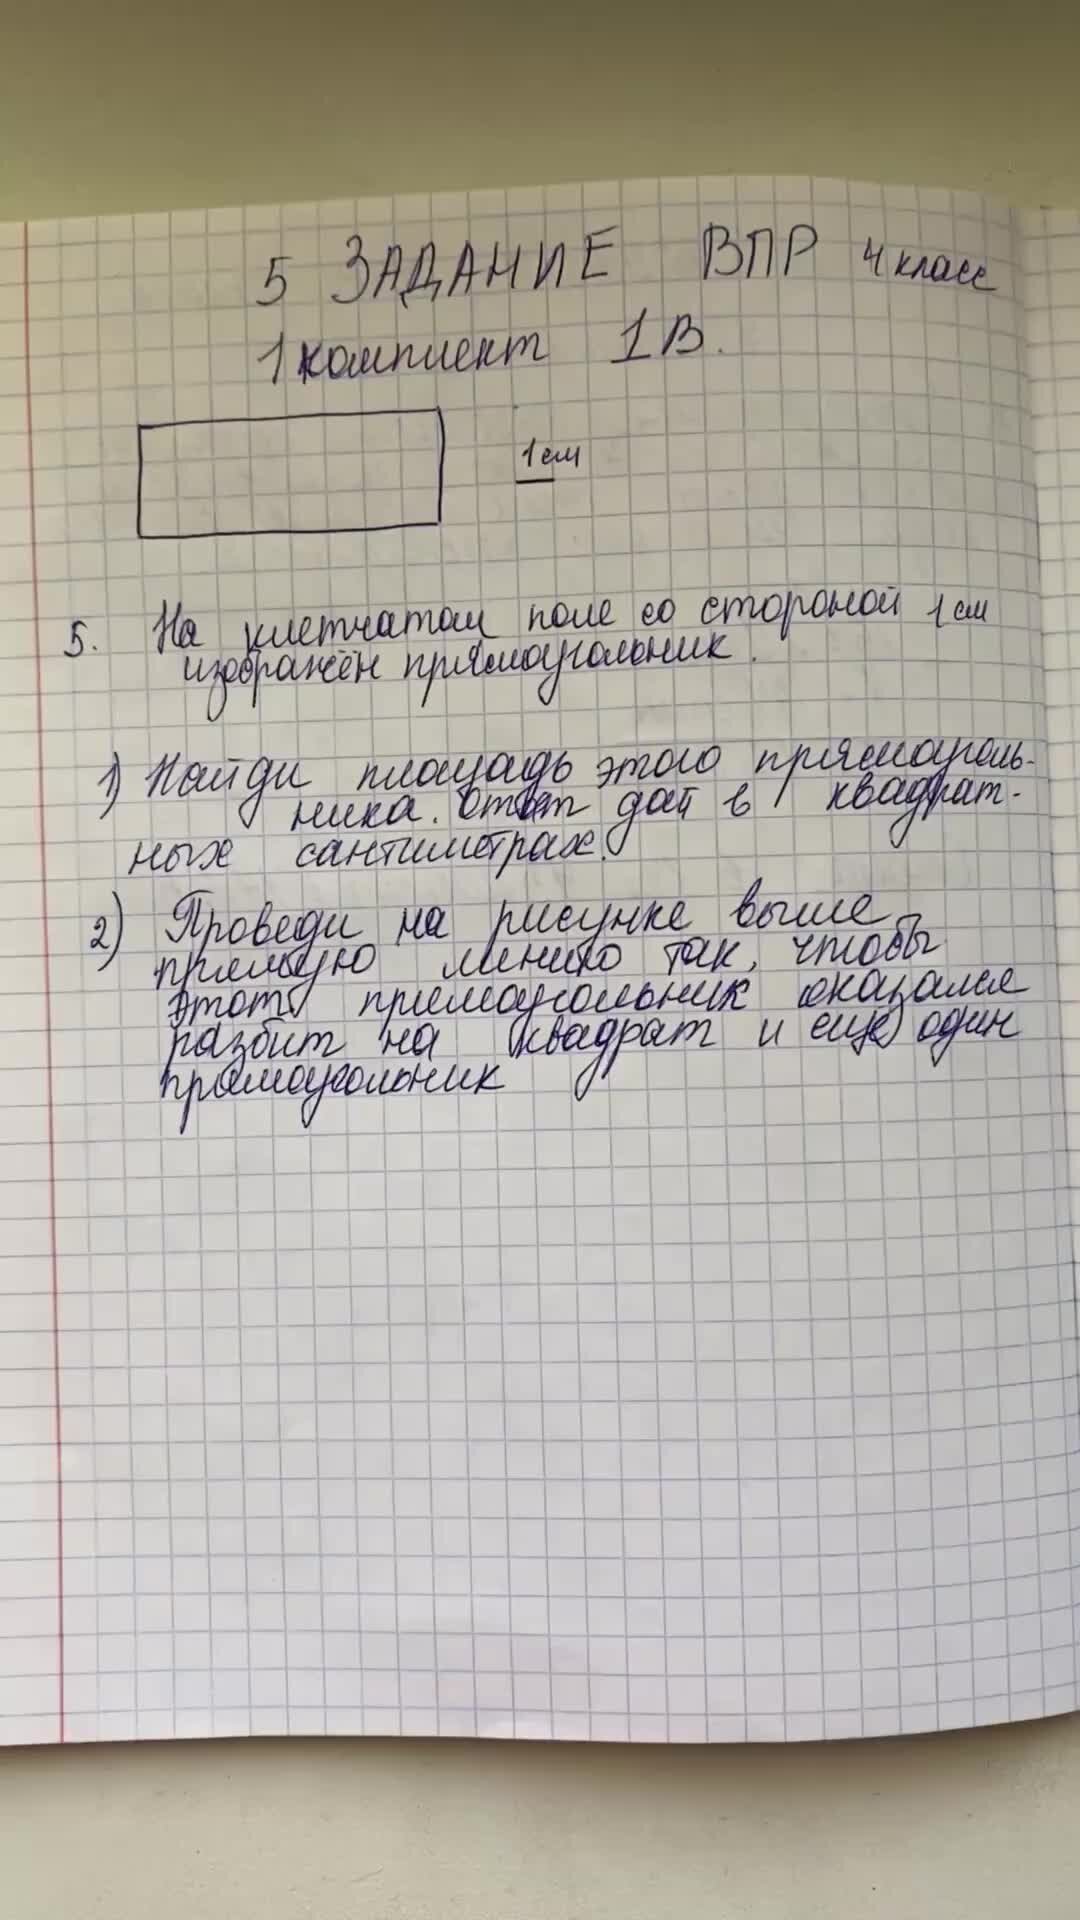 5 ЗАДАНИЕ ВПР 4 класс
1 комплект 1 В.
1 см
5. На клетчатом поле со стороной 1 см
изображён прямоугольник.
1) Найди площадь этого прямоуголь-
ника. Ответ дай в квадрат-
ных сантиметрах.
2) Проведи на рисунке выше
прямую линию так, чтобы
этот прямоугольник оказался
разбит на квадрат и ещё один
прямоугольник